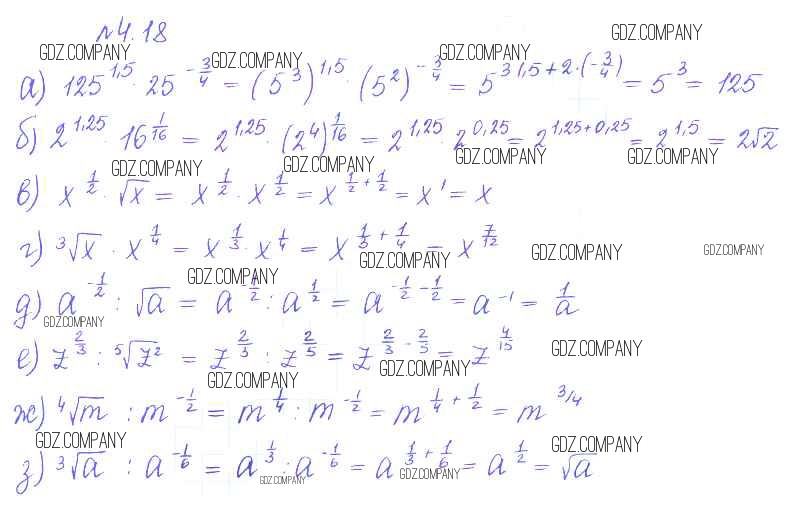 №4.18
GDZ.COMPANY
GDZ.COMPANY GDZ.COMPANY GDZ.COMPANY
а) 125^1,5 · 25^(-3/4) = (5^3)^1,5 · (5^2)^(-3/4) = 5^(3·1,5+2·(-3/4)) = 5^3 = 125
б) 2^1,25 · 16^(1/16) = 2^1,25 · (2^4)^(1/16) = 2^1,25 · 2^0,25 = 2^(1,25+0,25) = 2^1,5 = 2√2
GDZ.COMPANY GDZ.COMPANY GDZ.COMPANY GDZ.COMPANY
в) x^(1/2) · √x = x^(1/2) · x^(1/2) = x^(1/2+1/2) = x^1 = x
г) ³√x · x^(1/4) = x^(1/3) · x^(1/4) = x^(1/3+1/4) = x^(7/12)
GDZ.COMPANY GDZ.COMPANY GDZ.COMPANY
GDZ.COMPANY
д) a^(-1/2) : √a = a^(-1/2) : a^(1/2) = a^(-1/2-1/2) = a^-1 = 1/a
GDZ.COMPANY
е) z^(2/3) : ⁵√z² = z^(2/3) : z^(2/5) = z^(2/3-2/5) = z^(4/15)
GDZ.COMPANY
GDZ.COMPANY GDZ.COMPANY
ж) ⁴√m : m^(-1/2) = m^(1/4) : m^(-1/2) = m^(1/4+1/2) = m^3/4
GDZ.COMPANY GDZ.COMPANY
з) ³√a : a^(-1/6) = a^(1/3) : a^(-1/6) = a^(1/3+1/6) = a^(1/2) = √a
GDZ.COMPANY GDZ.COMPANY